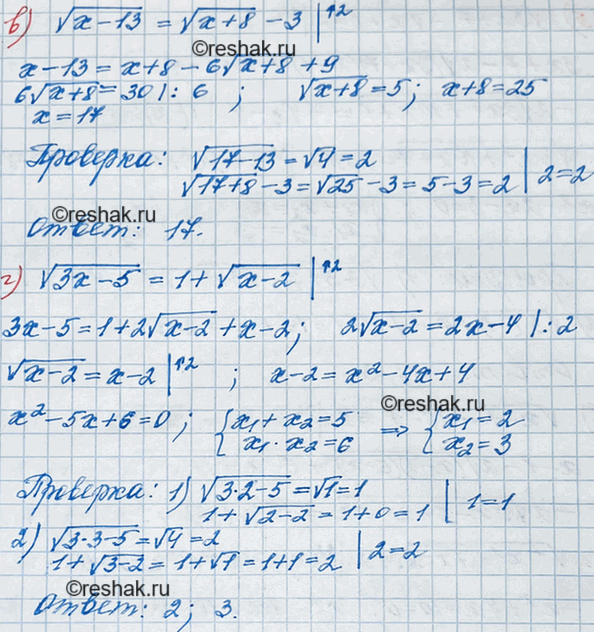 в) √(x-13) = √(x+8) - 3 |↑2
©reshak.ru
x-13 = x+8 - 6√(x+8) + 9
6√(x+8) = 30 |: 6 ; √(x+8) = 5; x+8 = 25
x = 17
Проверка: √(17-13) = √4 = 2
√(17+8) - 3 = √25 - 3 = 5-3 = 2 | 2=2
©reshak.ru
Ответ: 17.
г) √(3x-5) = 1+ √(x-2) |↑2
3x-5 = 1+2√(x-2) + x-2; 2√(x-2) = 2x-4 |: 2
√(x-2) = x-2 |↑2 ; x-2 = x²-4x+4
©reshak.ru
x²-5x+6=0; { x₁+x₂=5 x₁·x₂=6 => { x₁=2 x₂=3
Проверка: 1) √(3·2-5) = √1 = 1
1+√(2-2) = 1+0 = 1 | 1=1
2) √(3·3-5) = √4 = 2
1+√(3-2) = 1+√1 = 1+1 = 2 | 2=2
©reshak.ru
Ответ: 2; 3.